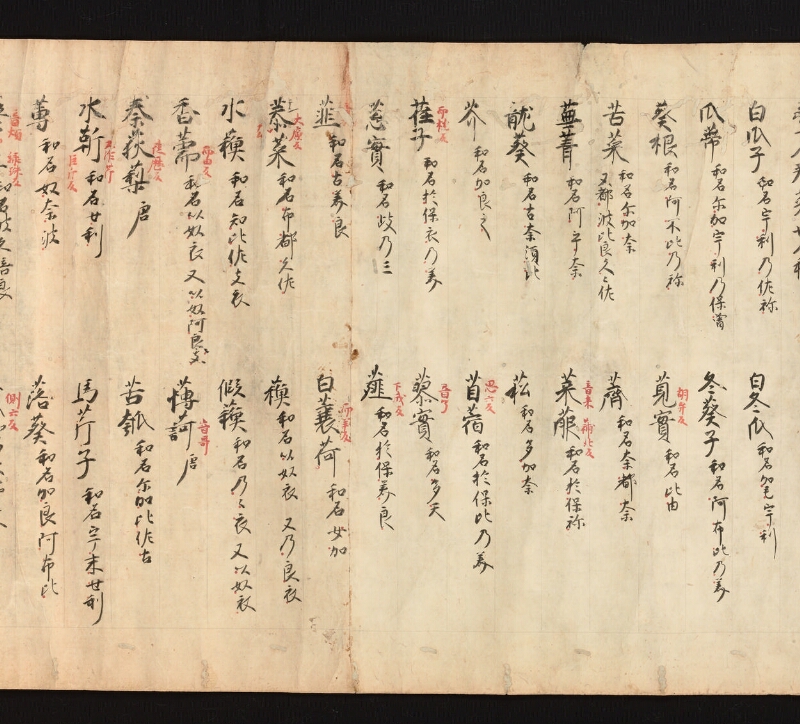 白瓜子 和名宇利乃佐祢 白冬瓜 和名加毛宇利
瓜蔕 和名尓加宇利乃保曽 冬葵子 和名阿布比乃美
葵根 和名阿不比乃祢 莧實 胡弁反 和名比由
苦菜 和名尓加奈 又都波比良久々佐 薺 和名奈都奈
蕪菁 和名阿乎奈 莱菔 音来 蒲北反 和名於保祢
龍葵 和名古奈須比 菘 和名多加奈
芥 和名加良之 苜蓿 思六反 和名於保比乃美
荏子 而枕反 和名於保衣乃美 蓼實 音了 和名多天
葱實 和名岐乃三 薤 下戒反 和名於保美良
韮 和名古美良 白蘘荷 而羊反 和名女加
菜 和名布都久佐 蘇 和名以奴衣 又乃良衣
水蘇 和名知比佐支衣 假蘇 和名乃々衣 又以奴衣
香薷 和名以奴衣 又以奴阿良々支 薄訶 音呵 唐
秦荻梨 唐 苦瓠 和名尓加比佐古
水斳 和名世利 馬芹子 和名宇末世利
蓴 和名奴奈波 落葵 和名加良阿布比